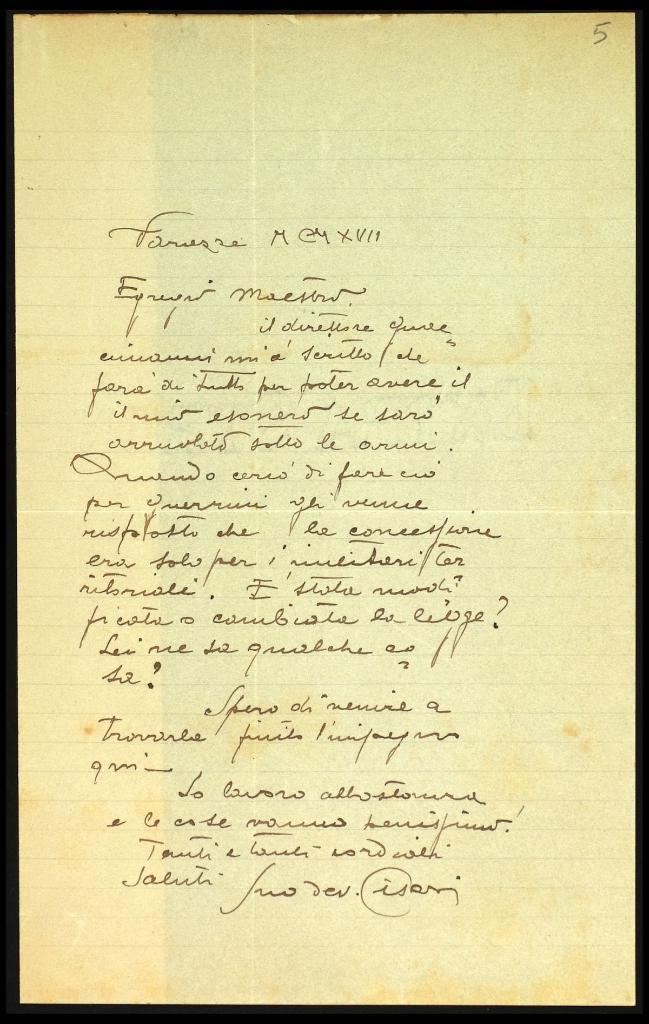 5
Varazze MCMXVII
Egregio Maestro.
il direttore Guae
cinanni mi à scritto che
farà di tutto per poter avere il
il mio esonero se sarò
arruolato sotto le armi.
Quando cercò di fare ciò
per Guerrini gli venne
risposto che la concessione
era solo per i militari ter
ritoriali. E' stata modi
ficata o cambiata la legge?
Lei ne sa qualche co
sa?
Spero di venire a
trovarla finito l'impegno
qui —
Io lavoro abbastanza
e le cose vanno benissimo!
Tanti e tanti cordiali
saluti Suo dev.